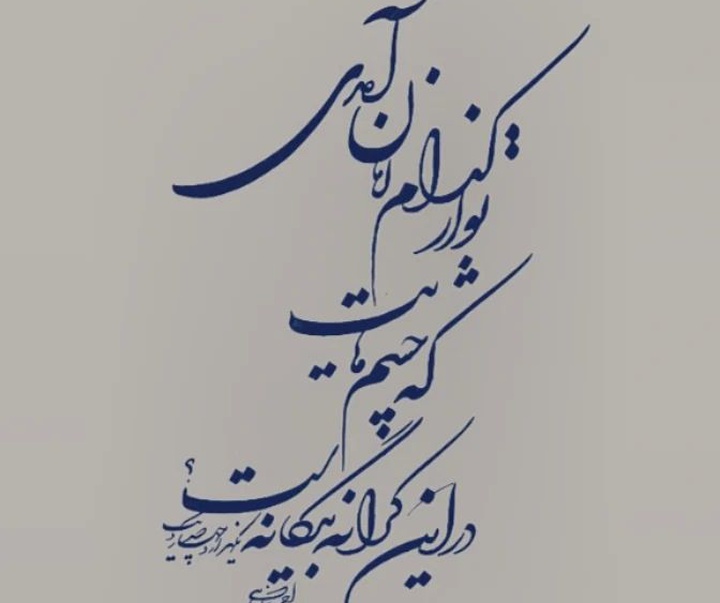 تو از کدام جهان آمدی
که چشم‌هایت
در این کرانه بیگانه است؟